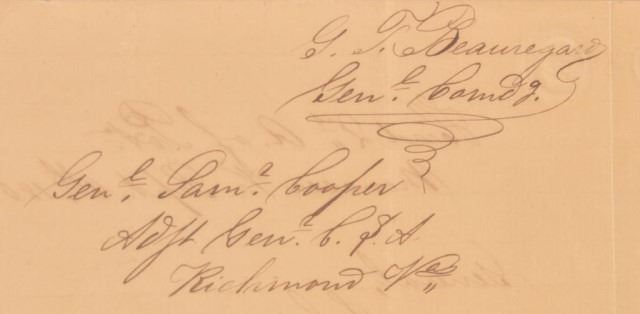 G. T. Beauregard
Genl. Comdg.
Genl. Saml. Cooper
Adjt Genl. C. S. A
Richmond Va